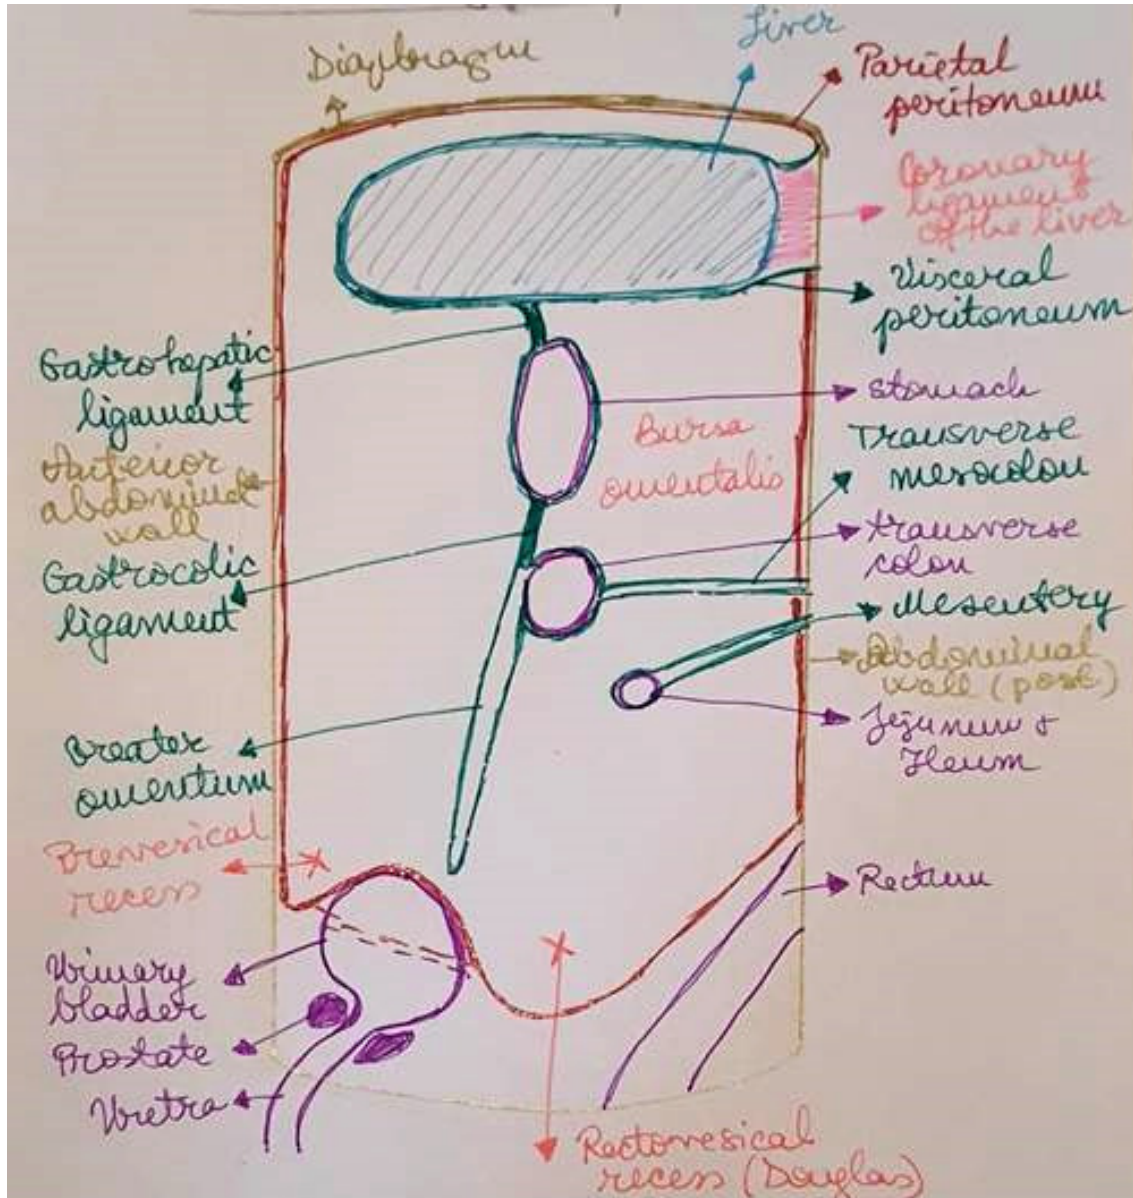 Diaphragm
Liver
Parietal
peritoneum
Coronary
ligament
of the liver
Visceral
peritoneum
Gastrohepatic
ligament
stomach
Bursa
omentalis
Transverse
mesocolon
Anterior
abdominal
wall
transverse
colon
Gastrocolic
ligament
Mesentery
Abdominal
wall (post)
Jejunum &
Ileum
Greater
omentum
Prevesical
recess
Rectum
Urinary
bladder
Prostate
Uretra
Rectovesical
recess (Douglas)